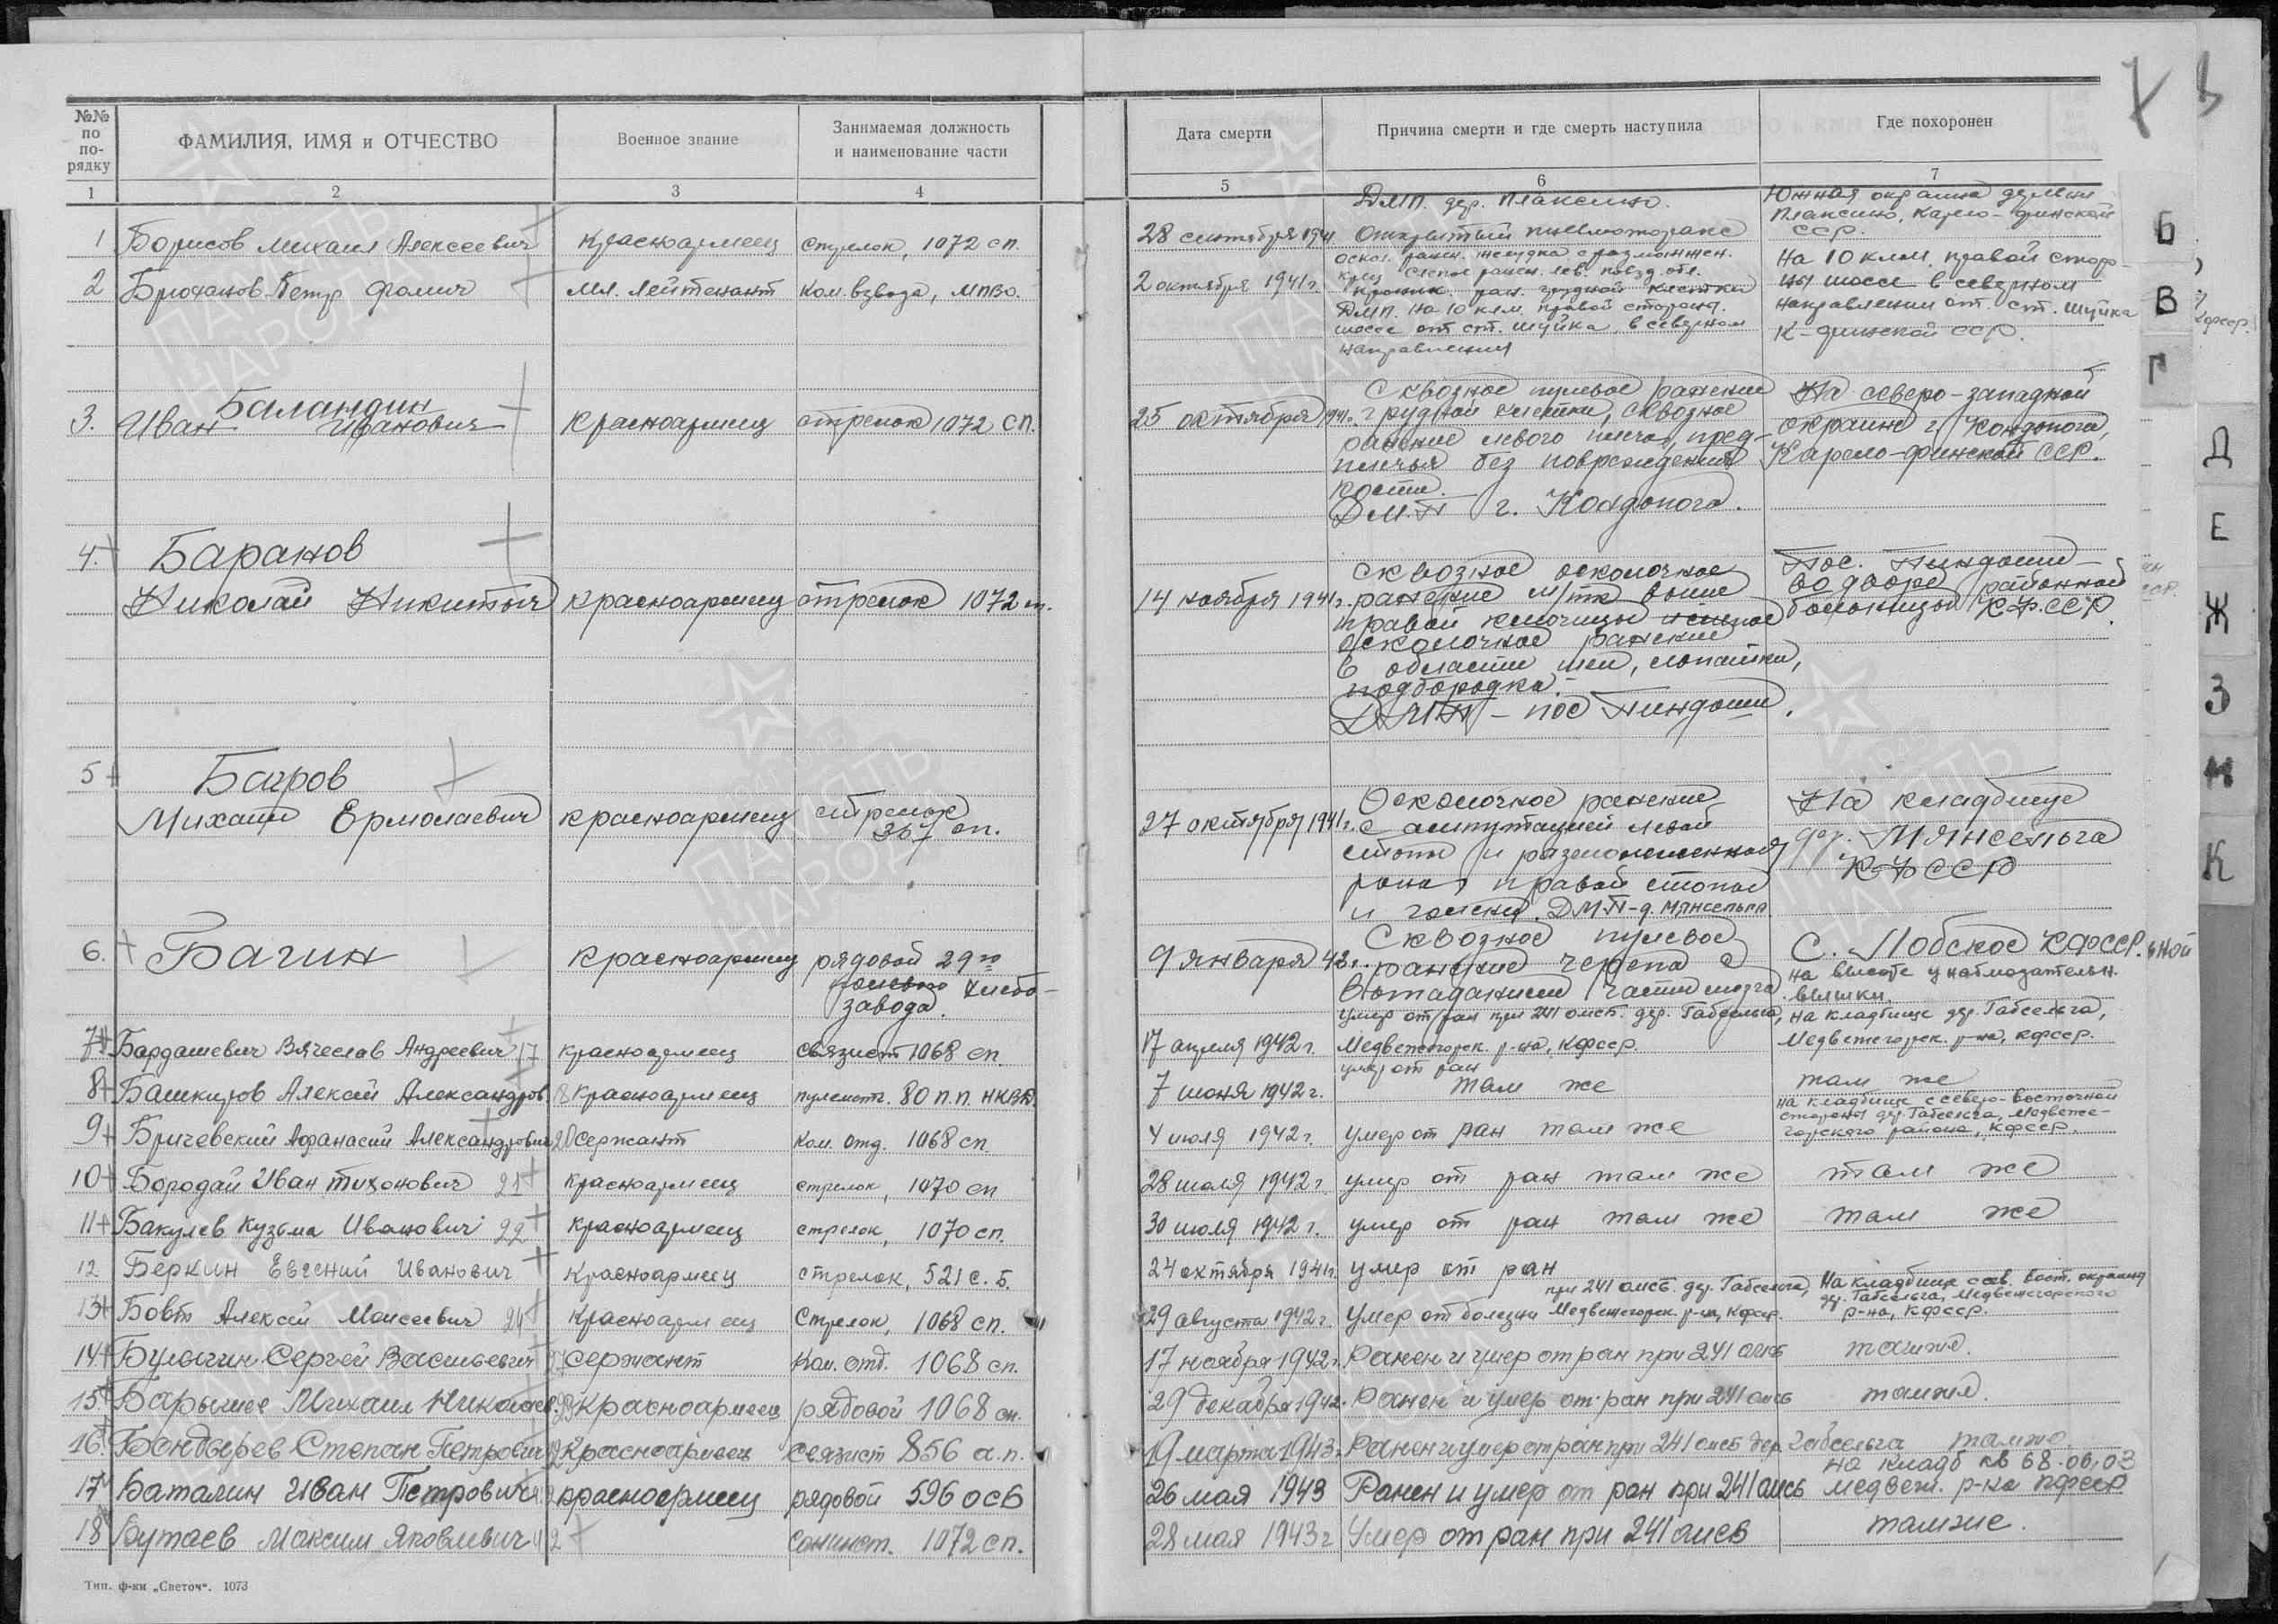 №№ по по-рядку
ФАМИЛИЯ, ИМЯ и ОТЧЕСТВО
Военное звание
Занимаемая должность и наименование части
Дата смерти
Причина смерти и где смерть наступила
Где похоронен
1 2 3 4 5 6 7
1 Борисов Михаил Алексеевич красноармеец стрелок, 1072 сп. 28 сентября 1941
ДМП. дер. Плаксино.
Открытый пневмоторакс
Южная окраина деревни
Плаксино, Карело-финской
ССР.
2 Брюханов Петр Фомич мл. лейтенант ком. взвода, МПВО. 2 октября 1941 г.
ДМП. На 10 клм. правой стороны
шоссе от ст. Шуйка в северном
направлении
На 10 клм. правой сторо-
ны шоссе в северном
направлении от ст. Шуйка
К-финской ССР.
3. Баландин
Иван Иванович красноармеец стрелок 1072 сп. 25 октября 1941г.
Сквозное пулевое ранение
грудной клетки, сквозное
ранение левого плеча, пред-
плечья без повреждения
кости.
ДМП г. Кондопога.
На северо-западной
окраине г. Кондопога,
Карело-финской ССР.
4. Баранов
Николай Никитич красноармеец стрелок 1072 сп. 14 ноября 1941г.
Сквозное осколочное
ранение м/тк выше
правой ключицы
осколочное ранение
в области шеи, лопатки,
подбородка.
ДМП - пос Пиндоши.
Пос. Пиндоши-
во дворе районной
больницы К.Ф.ССР.
5 Багров
Михаил Ермолаевич красноармеец стрелок
367 сп. 27 октября 1941г.
Осколочное ранение
с ампутацией левой
стопы и размозженная
рана правой стопы
и голени. ДМП-д. Мянсельга
На кладбище
дер. Мянсельга
К-Ф ССР
6. Багин красноармеец рядовой 29го
полевого хлебо-
завода. 9 января 42г.
Сквозное пулевое
ранение черепа с
выпаданием части мозга
С. Лобское КФССР.
на высоте у наблюдательн.
вышки.
7 Бардашевич Вячеслав Андреевич 17 красноармеец связист 1068 сп. 17 апреля 1942 г.
умер от ран при 241 омсб. дер. Габсельга,
Медвежегорск. р-на, КФССР.
на кладбище дер. Габсельга,
Медвежегорск. р-на, КФССР.
8 Башкиров Алексей Александров. 18 красноармеец пулеметч. 80 п.п. НКВД. 7 июня 1942 г.
умер от ран
там же там же
9 Бричевский Афанасий Александрович 20 сержант ком. отд. 1068 сп 4 июля 1942 г. умер от ран там же
на кладбище с северо-восточной
стороны дер. Габсельга, Медвеже-
горского района, КФССР.
10 Бородай Иван Тихонович 21 красноармеец стрелок, 1070 сп 28 июля 1942 г. умер от ран там же там же
11 Бакулев Кузьма Иванович 22 красноармеец стрелок, 1070 сп. 30 июля 1942 г. умер от ран там же там же
12 Беркин Евгений Иванович красноармеец стрелок, 521 с.б. 24 октября 1941г. умер от ран
13 Бовт Алексей Моисеевич 24 красноармеец стрелок, 1068 сп. 29 августа 1942 г. умер от болезни
при 241 омсб. дер. Габсельга,
Медвежегорск. р-на, КФССР.
На кладбище с сев. вост. окраины
дер. Габсельга, Медвежегорского
р-на, КФССР.
14 Булыгин Сергей Васильевич сержант ком. отд. 1068 сп. 17 ноября 1942г. Ранен и умер от ран при 241 омсб там же.
15 Барышев Михаил Николаев. красноармеец рядовой 1068 сп. 29 декабря 1942. Ранен и умер от ран при 241 омсб там же.
16. Бондырев Степан Петрович красноармеец связист 856 а.п. 19 марта 1943г. Ранен и умер от ран при 241 омсб дер. Габсельга там же.
17 Баталин Иван Петрович красноармеец рядовой 596 осб 26 мая 1943 Ранен и умер от ран при 241 омсб
на кладб кв 68.06.03
медвеж. р-на КФССР
18 Бутаев Максим Яковлевич 1072 сп. 28 мая 1943 г Умер от ран при 241 омсб там же.
Тип. ф-ки „Светоч“. 1073
Б
В
Г
Д
Е
Ж
З
И
К
ПАМЯТЬ НАРОДА